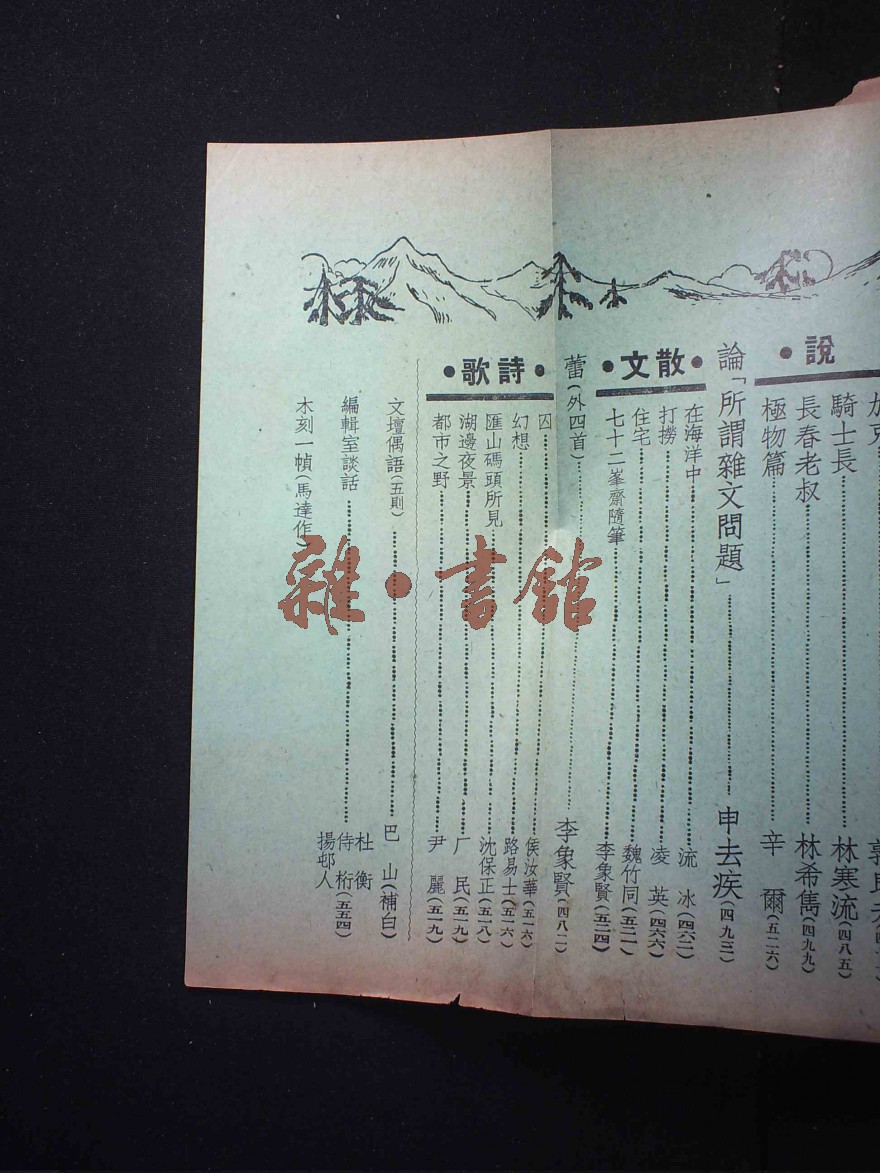 說
騎士長 林寒流（四八五）
長春老叔 林希雋（四九九）
極物篇 辛爾（五二六）
論「所謂雜文問題」 申去疾（四九三）
散文
在海洋中 流冰（四六二）
打撈 凌英（四六六）
住宅 魏竹同（五二一）
七十二峯齋隨筆 李象賢（五二四）
蕾（外四首） 李象賢（四八二）
詩歌
囚 侯汝華（五一六）
幻想 路易士（五一六）
匯山碼頭所見 沈保正（五一八）
湖邊夜景 厂民（五一九）
都市之野 尹麗（五一九）
文壇偶語（五則） 巴山（補白）
編輯室談話 杜衡 侍桁 揚邨人（五五四）
木刻一幀（馬達作）
雜·書館